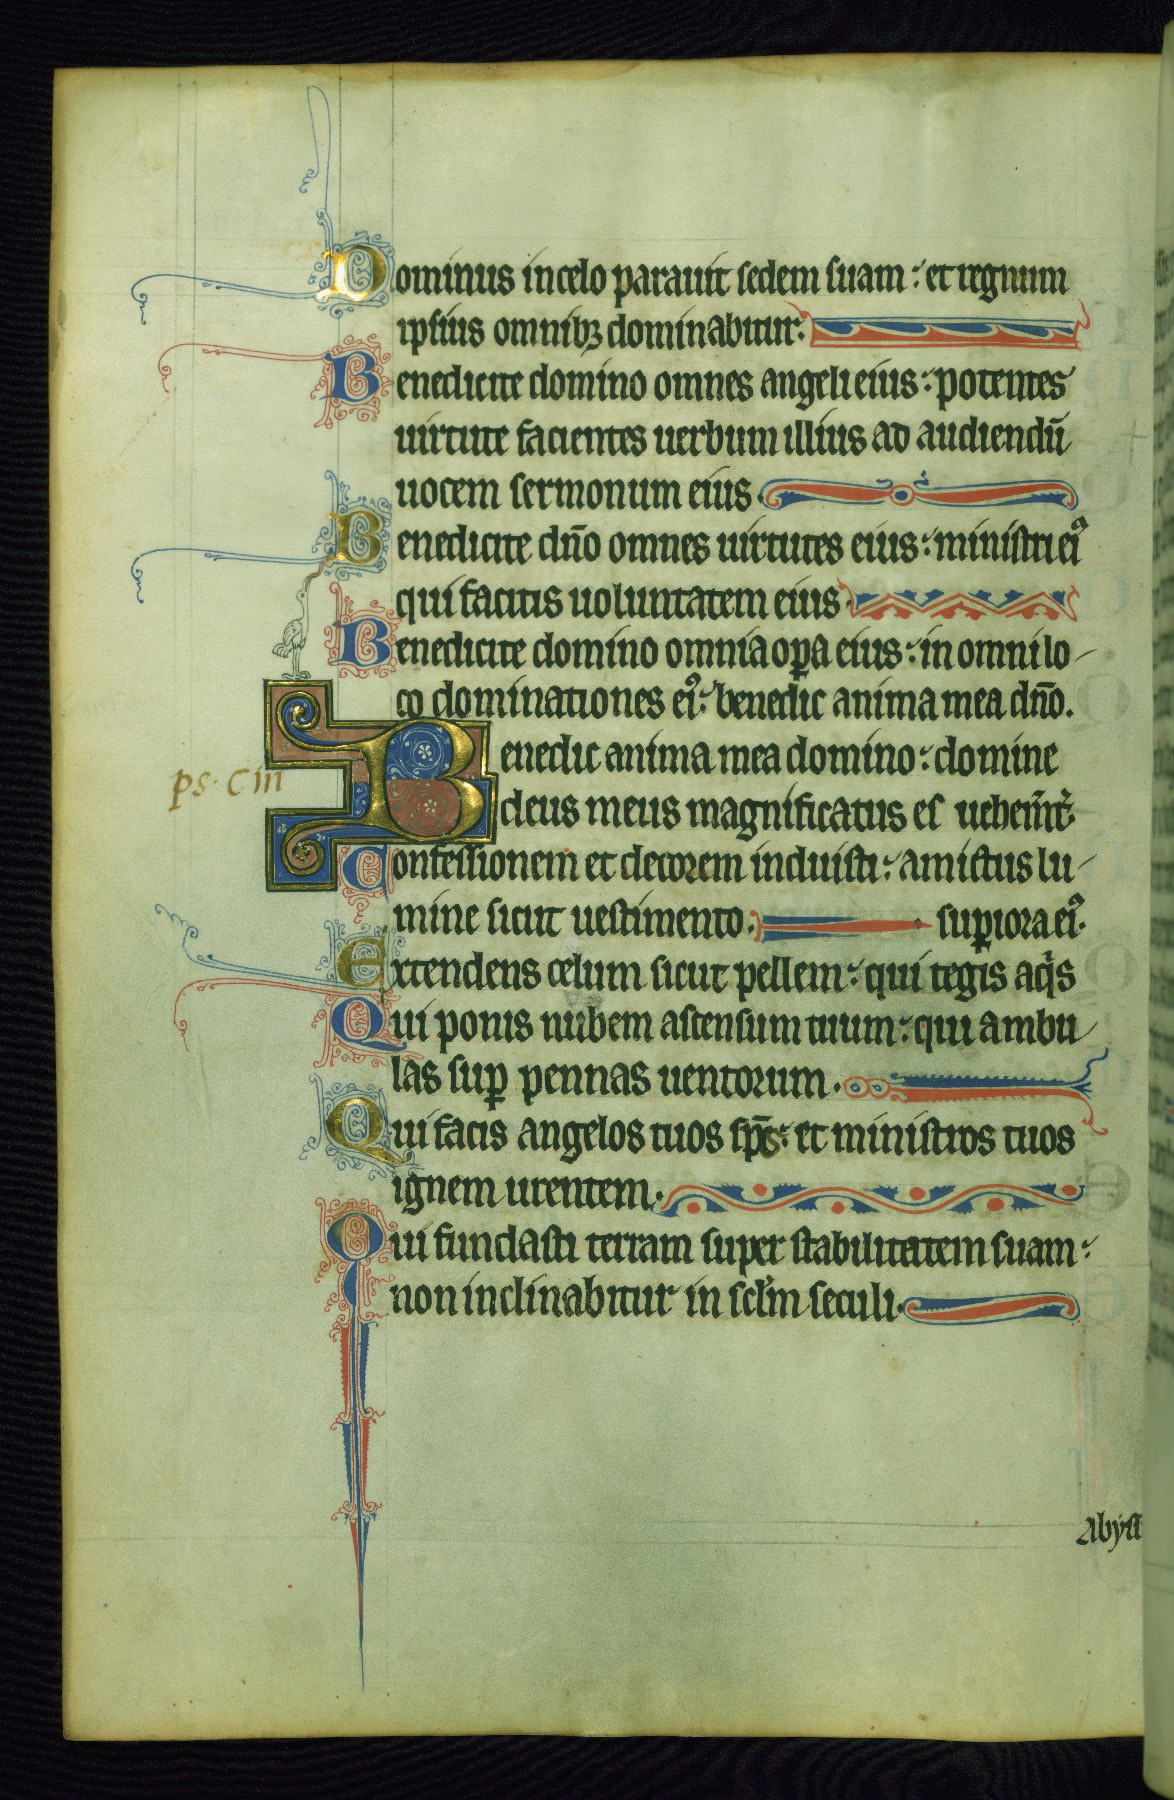 Dominus in celo parauit sedem suam : et regnum
ipsius omnibꝫ dominabitur.
Benedicite domino omnes angeli eius : potentes
uirtute facientes uerbum illius ad audiendū
uocem sermonum eius.
Benedicite dn̄o omnes uirtutes eius : ministri eiꝰ
qui facitis uoluntatem eius.
Benedicite domino omnia oꝑa eius : in omni lo-
co dominationes eiꝰ : benedic anima mea dn̄o.
Benedic anima mea domino : domine
ps. Ciii
deus meus magnificatus es uehem̄t᷑.
Confessionem et decorem induisti : amictus lu-
mine sicut uestimento. suꝑiora eiꝰ.
Extendens celum sicut pellem : qui tegis aq̓s
Qui ponis nubem ascensum tuum : qui ambu-
las suꝑ pennas uentorum.
Qui facis angelos tuos sp̄c : et ministros tuos
ignem urentem.
Qui fundasti terram super stabilitatem suam :
non inclinabitur in sc̄lm seculi.
Abyss